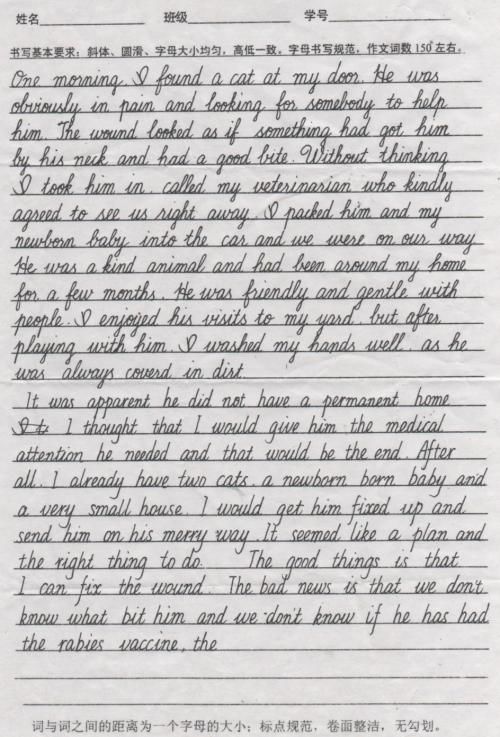 姓名 班级 学号
书写基本要求：斜体、圆滑、字母大小均匀，高低一致。字母书写规范，作文词数150左右。
One morning, I found a cat at my door. He was
obviously in pain and looking for somebody to help
him. The wound looked as if something had got him
by his neck and had a good bite. Without thinking
I took him in, called my veterinarian who kindly
agreed to see us right away. I packed him and my
newborn baby into the car and we were on our way
He was a kind animal and had been around my home
for a few months. He was friendly and gentle with
people. I enjoyed his visits to my yard, but after
playing with him, I washed my hands well, as he
was always coverd in dirt.
It was apparent he did not have a permanent home
I thought that I would give him the medical
attention he needed and that would be the end. After
all, I already have two cats, a newborn born baby and
a very small house. I would get him fixed up and
send him on his merry way. It seemed like a plan and
the right thing to do. The good things is that
I can fix the wound. The bad news is that we don't
know what bit him and we don't know if he has had
the rabies vaccine, the
词与词之间的距离为一个字母的大小；标点规范，卷面整洁，无勾划。